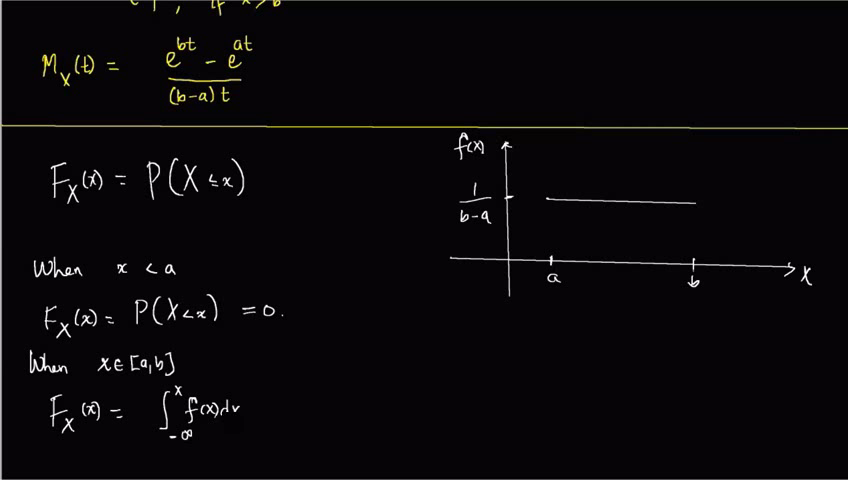 , if x > b
M_X(t) = (e^{bt} - e^{at}) / ((b-a)t)
F_X(x) = P(X ≤ x)
When x < a
F_X(x) = P(X < x) = 0.
When x ∈ [a,b]
F_X(x) = ∫_{-∞}^{x} f(x)dx
f(x)
1/(b-a)
a
b
X